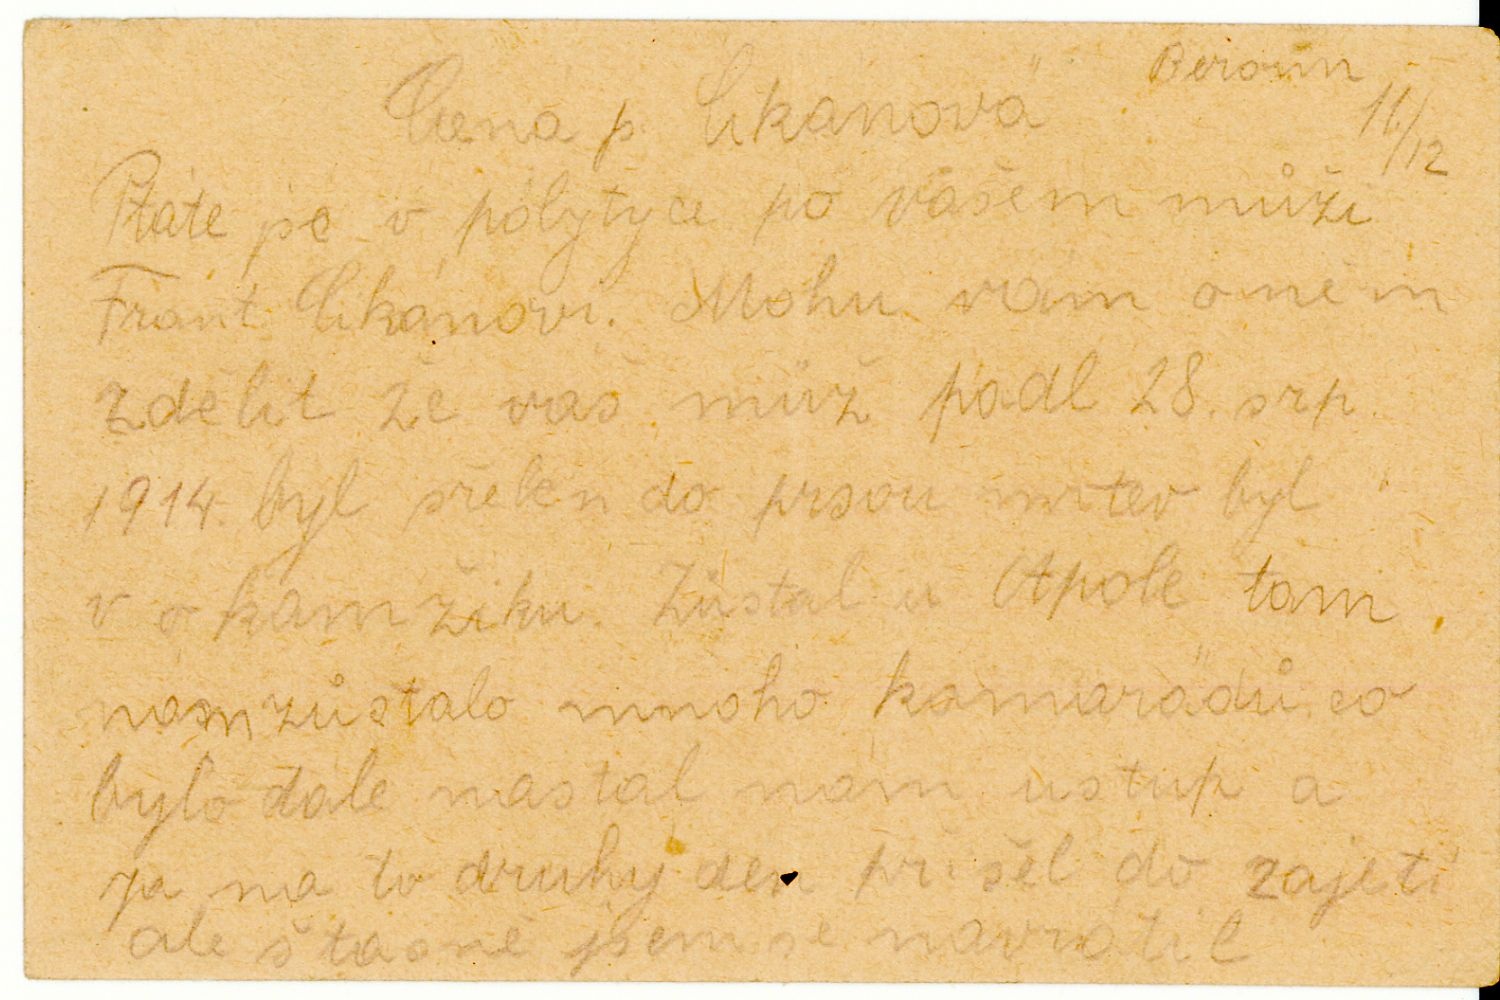 Beroun
11/12
Ctená p. Cikánová
Ptáte se v polityce po vašem můži
Frant. Cikánovi. Mohu vám o něm
zdělit že vaš můž padl 28. srp.
1914. byl střelen do prsou mrtev byl
v okamžiku. Zůstal u Opole tam
nám zůstalo mnoho kamarádů, co
bylo dále nastal nám ustup a
ja na to druhy den přišel do zajetí
ale štasně jsem se navrátil